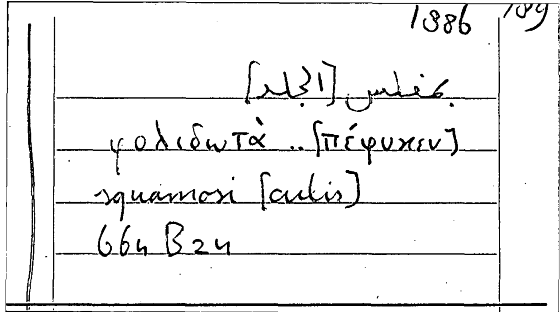 1386 189
[الجلد]
φολιδωτὰ .. [πέφυκεν]
squamosi [cutis]
664 B 24